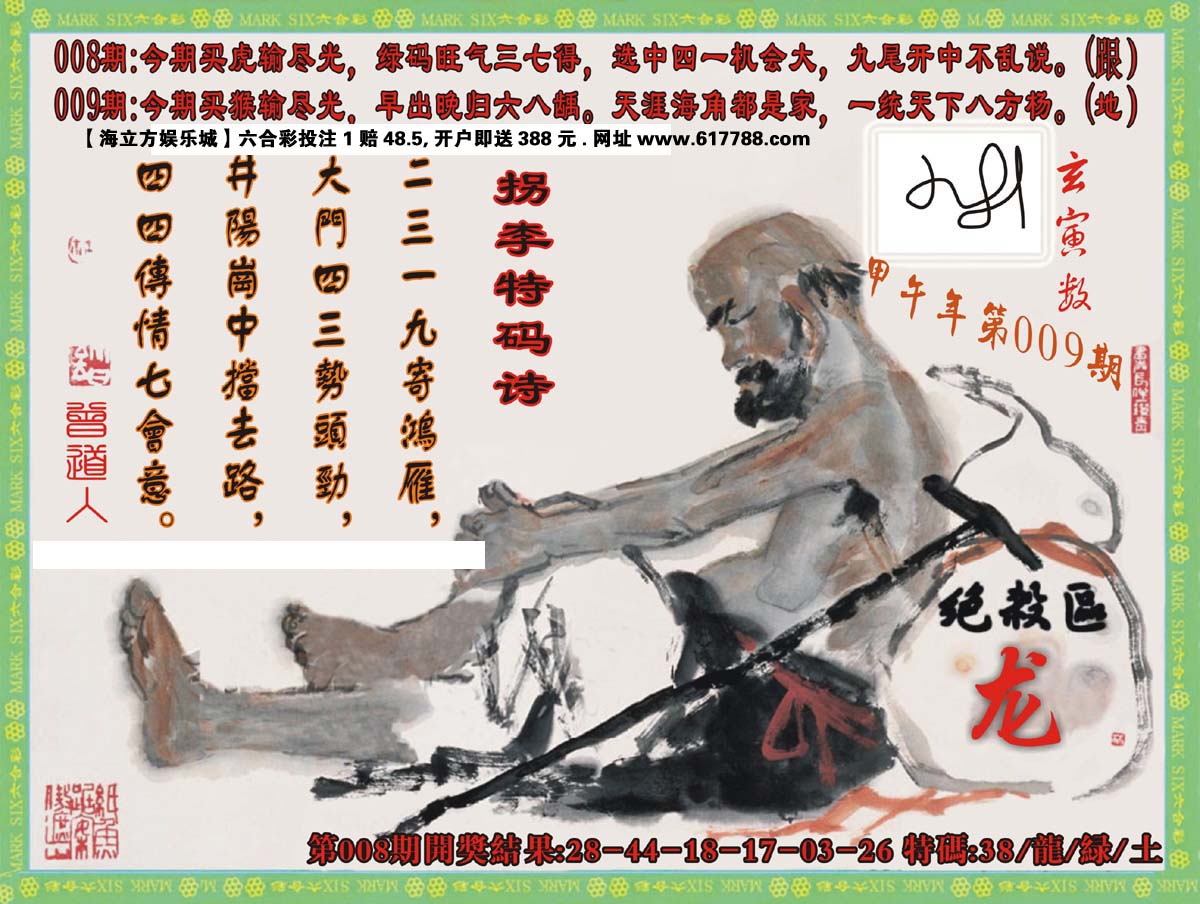 MARK SIX六合彩 MARK SIX六合彩 MARK SIX六合彩 MARK SIX六合彩 MARK SIX六合彩 MARK SIX六合彩 MARK SIX六合彩
008期:今期买虎输尽光，绿码旺气三七得，选中四一机会大，九尾开中不乱说。(跟)
009期:今期买猴输尽光，早出晚归六八龋。天涯海角都是家，一统天下八方杨。(地)
【海立方娱乐城】六合彩投注1赔48.5,开户即送388元.网址www.617788.com
玄寅数
甲午年第009期
拐李特码诗
二三一九寄鴻雁，
大門四三勢頭勁，
井陽崗中擋去路，
四四傳情七會意。
曾道人
绝殺區
龙
第008期開獎結果:28-44-18-17-03-26 特碼:38/龍/緑/土